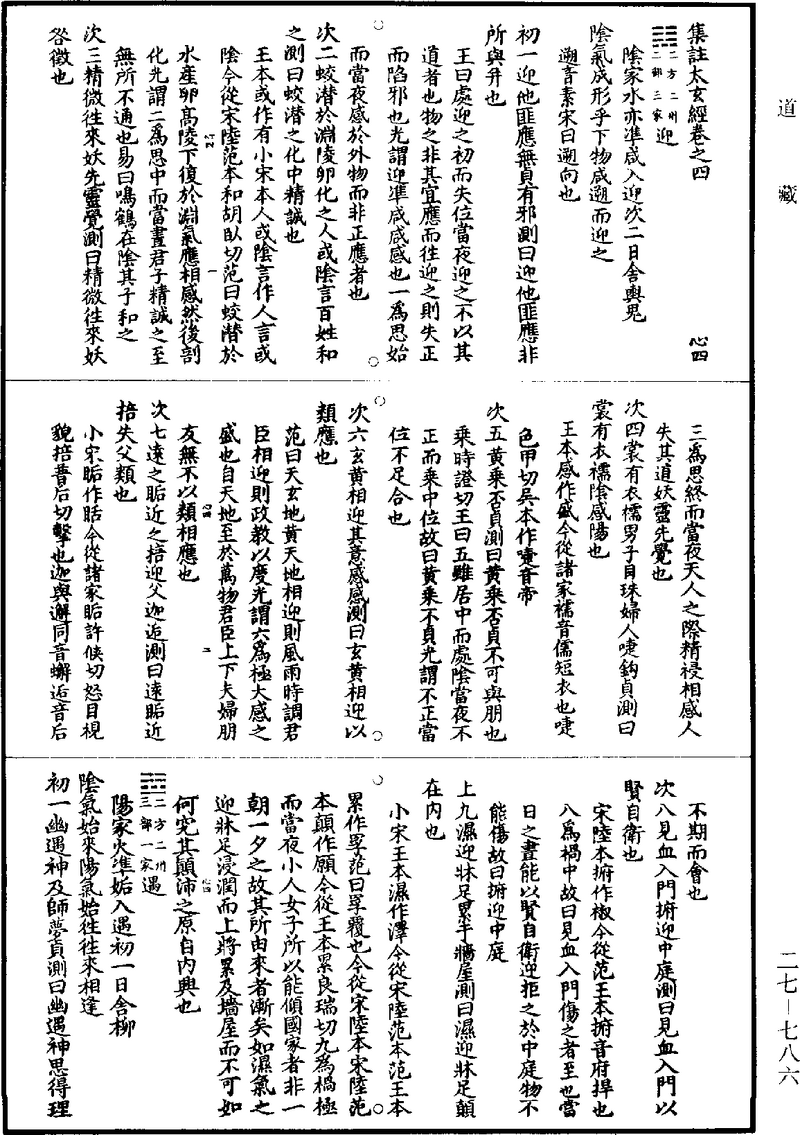 道藏
集註太玄經卷之四
心四
二方二州
二部三家
迎
陰家水亦準咸入迎次二日舍輿鬼
陰氣成形乎下物咸遡而迎之
遡音素宋曰遡向也
初一迎他匪應無貞有邪測曰迎他匪應非
所與升也
王曰處迎之初而失位當夜迎之不以其
道者也物之非其宜應而往迎之則失正
而陷邪也光謂迎準咸咸感也一為思始
而當夜感於外物而非正應者也
次二蛟潜於淵陵卵化之人或陰言百姓和
之測曰蛟潜之化中精誠也
王本或作有小宋本人或陰言作人言或
陰今從宋陸范本和胡臥切范曰蛟潜於
水產卵高陵下復於淵氣應相感然後剖
化光謂二為思中而當晝君子精誠之至
無所不通也易曰鳴鶴在陰其子和之
次三精微往來妖先靈覺測曰精微往來妖
咎徵也
三為思終而當夜天人之際精祲相感人
失其道妖靈先覺也
次四裳有衣襦男子目珠婦人啑鉤貞測曰
裳有衣襦陰感陽也
王本感作盛今從諸家襦音儒短衣也啑
色甲切吳本作嚏音帝
次五黄乘否貞測曰黄乘否貞不可與朋也
乘時證切王曰五雖居中而處陰當夜不
正而乘中位故曰黄乘不貞光謂不正當
位不足合也
次六玄黄相迎其意感感測曰玄黄相迎以
類應也
范曰天玄地黄天地相迎則風雨時調君
臣相迎則政教以度光謂六為極大感之
盛也自天地至於萬物君臣上下夫婦朋
友無不以類相應也
次七遠之䀕近之掊迎父迦逅測曰遠䀕近
掊失父類也
小宋䀕作䀨今從諸家䀕許候切怒目視
貌掊普后切擊也迦與邂同音蠏逅音后
不期而會也
次八見血入門捬迎中庭測曰見血入門以
賢自衛也
宋陸本捬作椒今從范王本捬音府捍也
八為禍中故曰見血入門傷之者至也當
日之晝能以賢自衛迎拒之於中庭物不
能傷故曰捬迎中庭
上九濕迎牀足累乎牆屋測曰濕迎牀足顛
在内也
小宋王本濕作澤今從宋陸范本范王本
累作䍜范曰䍜覆也今從宋陸本宋陸范
本顛作願今從王本累良瑞切九為禍極
而當夜小人女子所以能傾國家者非一
朝一夕之故其所由來者漸矣如濕氣之
迎牀足浸潤而上將累及墻屋而不可如
何究其顛沛之原自内興也
二方二州
三部一家
遇
陽家火準姤入遇初一日舍柳
陰氣始來陽氣始往往來相逢
初一幽遇神及師夢貞測曰幽遇神思得理
二七—七八六